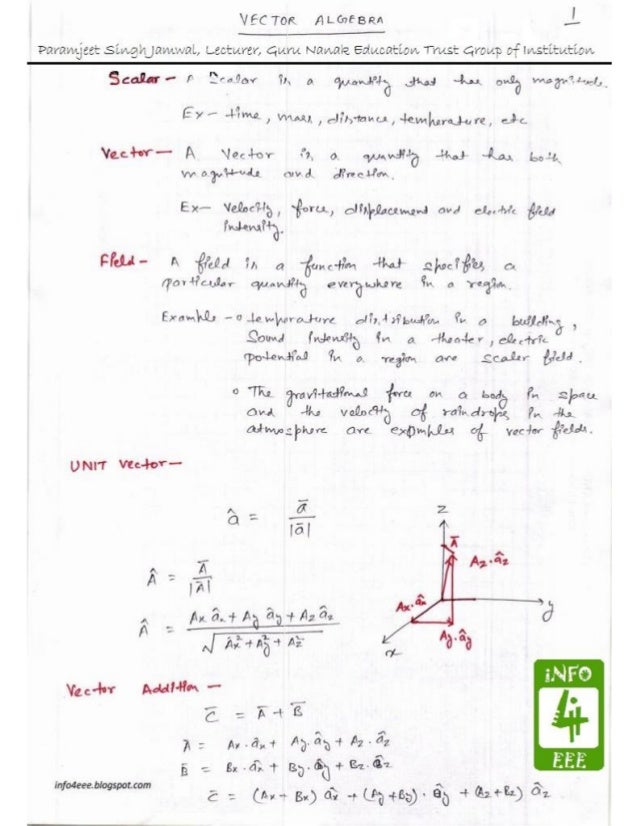 VECTOR ALGEBRA
1
Paramjeet Singh Jamwal, Lecturer, Guru Nanak Education Trust Group of Institution
Scalar - A Scalar is a quantity that has only magnitude.
Ex - time, mass, distance, temperature, etc
Vector - A Vector is a quantity that has both
magnitude and direction.
Ex - Velocity, force, displacement and electric field
intensity.
Field - A field is a function that specifies a
particular quantity everywhere in a region.
Example - o temperature distribution in a building,
Sound intensity in a theater, electric
potential in a region are scaler field.
o The gravitational force on a body in space
and the velocity of raindrops in the
atmosphere are examples of vector fields.
UNIT Vector -
â = ā / |ā|
Â = Ā / |Ā|
Â = Ax âx + Ay ây + Az âz / √Ax² + Ay² + Az²
z
Ā
Az·âz
Ax·âx
y
Ay·ây
x
Vector Addition -
C̄ = Ā + B̄
Ā = Ax·âx + Ay·ây + Az·âz
B̄ = Bx·âx + By·ây + Bz·âz
C̄ = (Ax + Bx) âx + (Ay + By)·ây + (Az + Bz) âz
iNFO
4
EEE
info4eee.blogspot.com